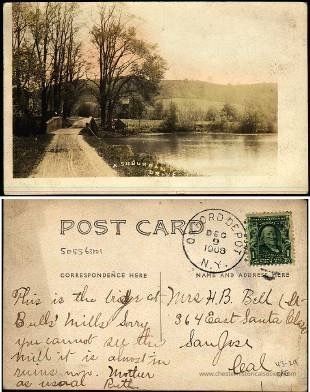 ASHBURN
DRIVE
POST CARD
CORRESPONDENCE HERE
NAME AND ADDRESS HERE
OXFORD DEPOT
DEC
9
1908
N.Y.
This is the bridge at
Bulls Mills Sorry
you cannot see the
mill it is almost in
ruins now. Mother
as usual
Mrs H.B. Bell
364 East Santa Clara
San Jose
Cal